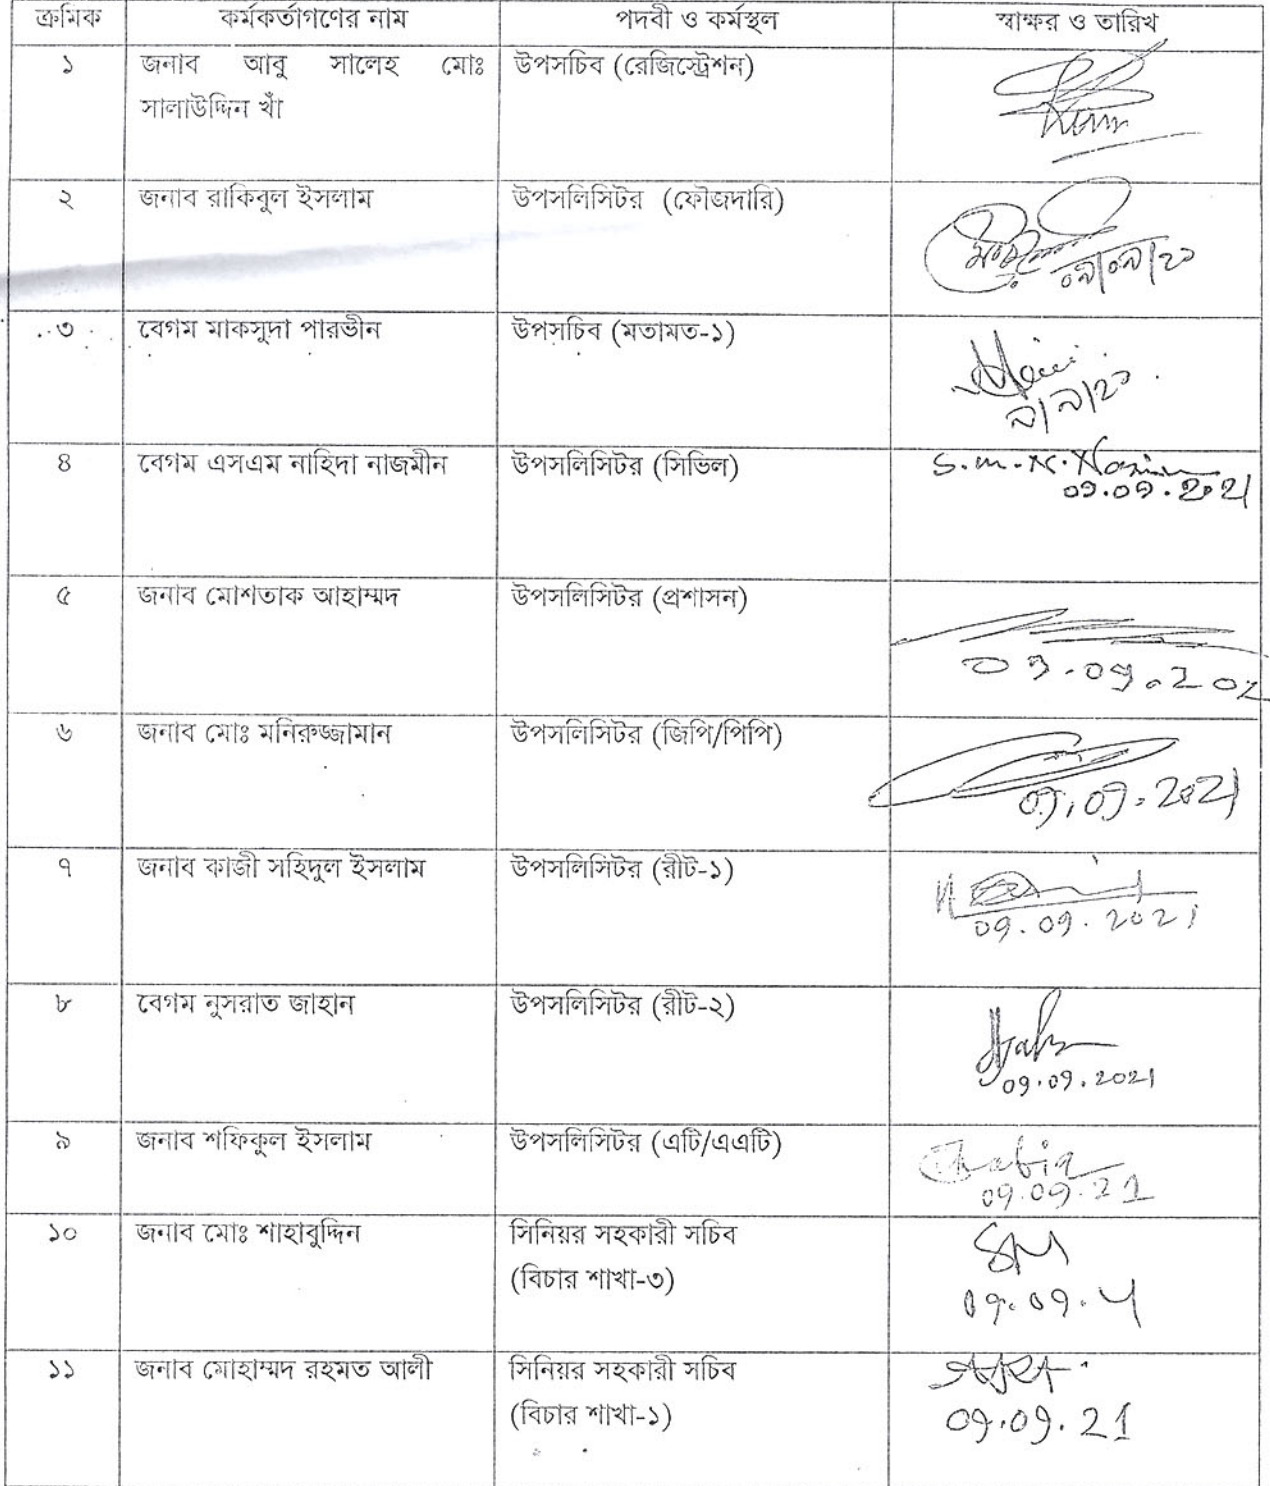 ক্রমিক কর্মকর্তাগণের নাম পদবী ও কর্মস্থল স্বাক্ষর ও তারিখ
১ জনাব আবু সালেহ মোঃ উপসচিব (রেজিস্ট্রেশন)
সালাউদ্দিন খাঁ
২ জনাব রাকিবুল ইসলাম উপসলিসিটর (ফৌজদারি)
০৯/০৯/২১
৩ বেগম মাকসুদা পারভীন উপসচিব (মতামত-১)
৯/৯/২১
৪ বেগম এসএম নাহিদা নাজমীন উপসলিসিটর (সিভিল) S.M.N.
09.09.2021
৫ জনাব মোশতাক আহাম্মদ উপসলিসিটর (প্রশাসন)
09.09.202
৬ জনাব মোঃ মনিরুজ্জামান উপসলিসিটর (জিপি/পিপি)
09.09.2021
৭ জনাব কাজী সহিদুল ইসলাম উপসলিসিটর (রীট-১)
09.09.2021
৮ বেগম নুসরাত জাহান উপসলিসিটর (রীট-২)
09.09.2021
৯ জনাব শফিকুল ইসলাম উপসলিসিটর (এটি/এএটি)
09.09.21
১০ জনাব মোঃ শাহাবুদ্দিন সিনিয়র সহকারী সচিব
(বিচার শাখা-৩)
09.09.21
১১ জনাব মোহাম্মদ রহমত আলী সিনিয়র সহকারী সচিব
(বিচার শাখা-১) 09.09.21